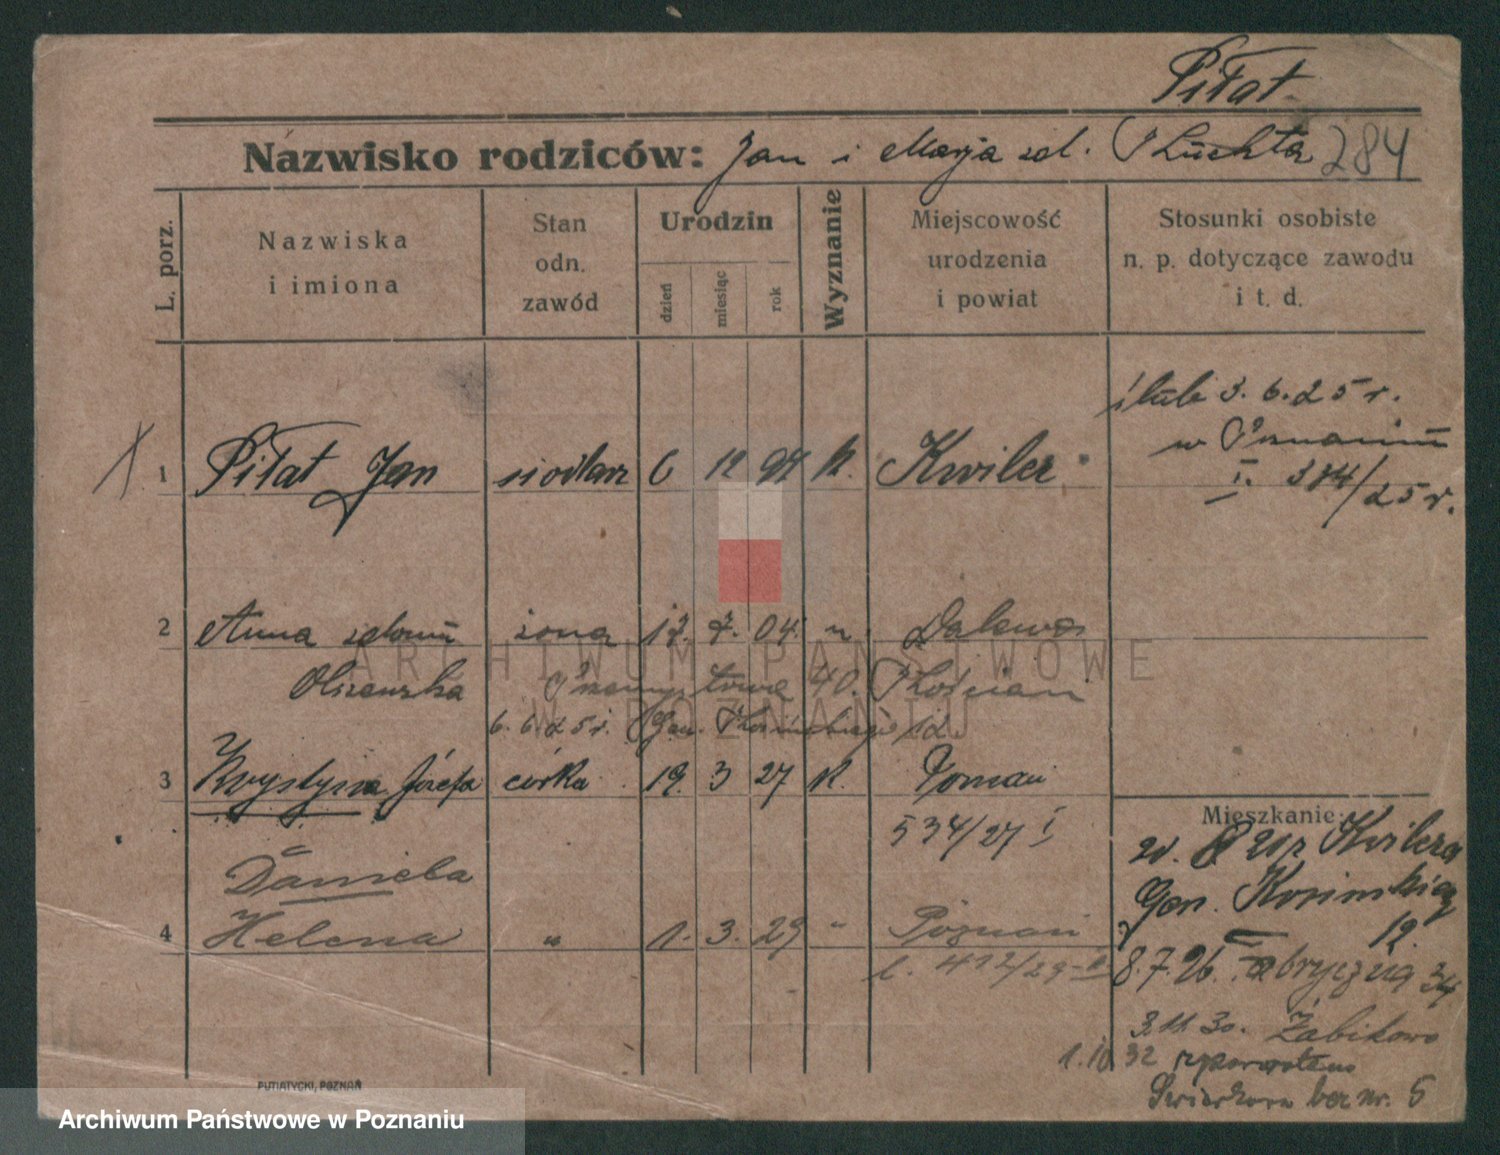 Piłat
Nazwisko rodziców: Jan i Marja zd. 284
L. porz.
Nazwiska i imiona
Stan odn. zawód
Urodzin
dzień miesiąc rok
Wyznanie
Miejscowość urodzenia i powiat
Stosunki osobiste n. p. dotyczące zawodu i t. d.
ślub 3. 6. 25 r.
w Poznaniu
I. 384/25 r.
1 Piłat Jan siodlarz 6 12 97 k. Kwilcz
2 Anna żona 17. 7. 04. Dalewo
Olszewska 40. Kościan
6. 6. 25 r. Gen. Kosińskiego 12
3 Krystyna Józefa córka 19. 3 27 k. Poznań
534/27 I
Daniela
4 Helena " 1. 3. 29 " Poznań
l. 412/29
Mieszkanie:
Kwilcza
Gen. Kosińskiego
12
8.7.26. Fabryczna 34
3.11.30. Żabikowo
1.10.32
ber nr. 5
PUTIATYCKI, POZNAŃ
ARCHIWUM PAŃSTWOWE
W POZNANIU
Archiwum Państwowe w Poznaniu